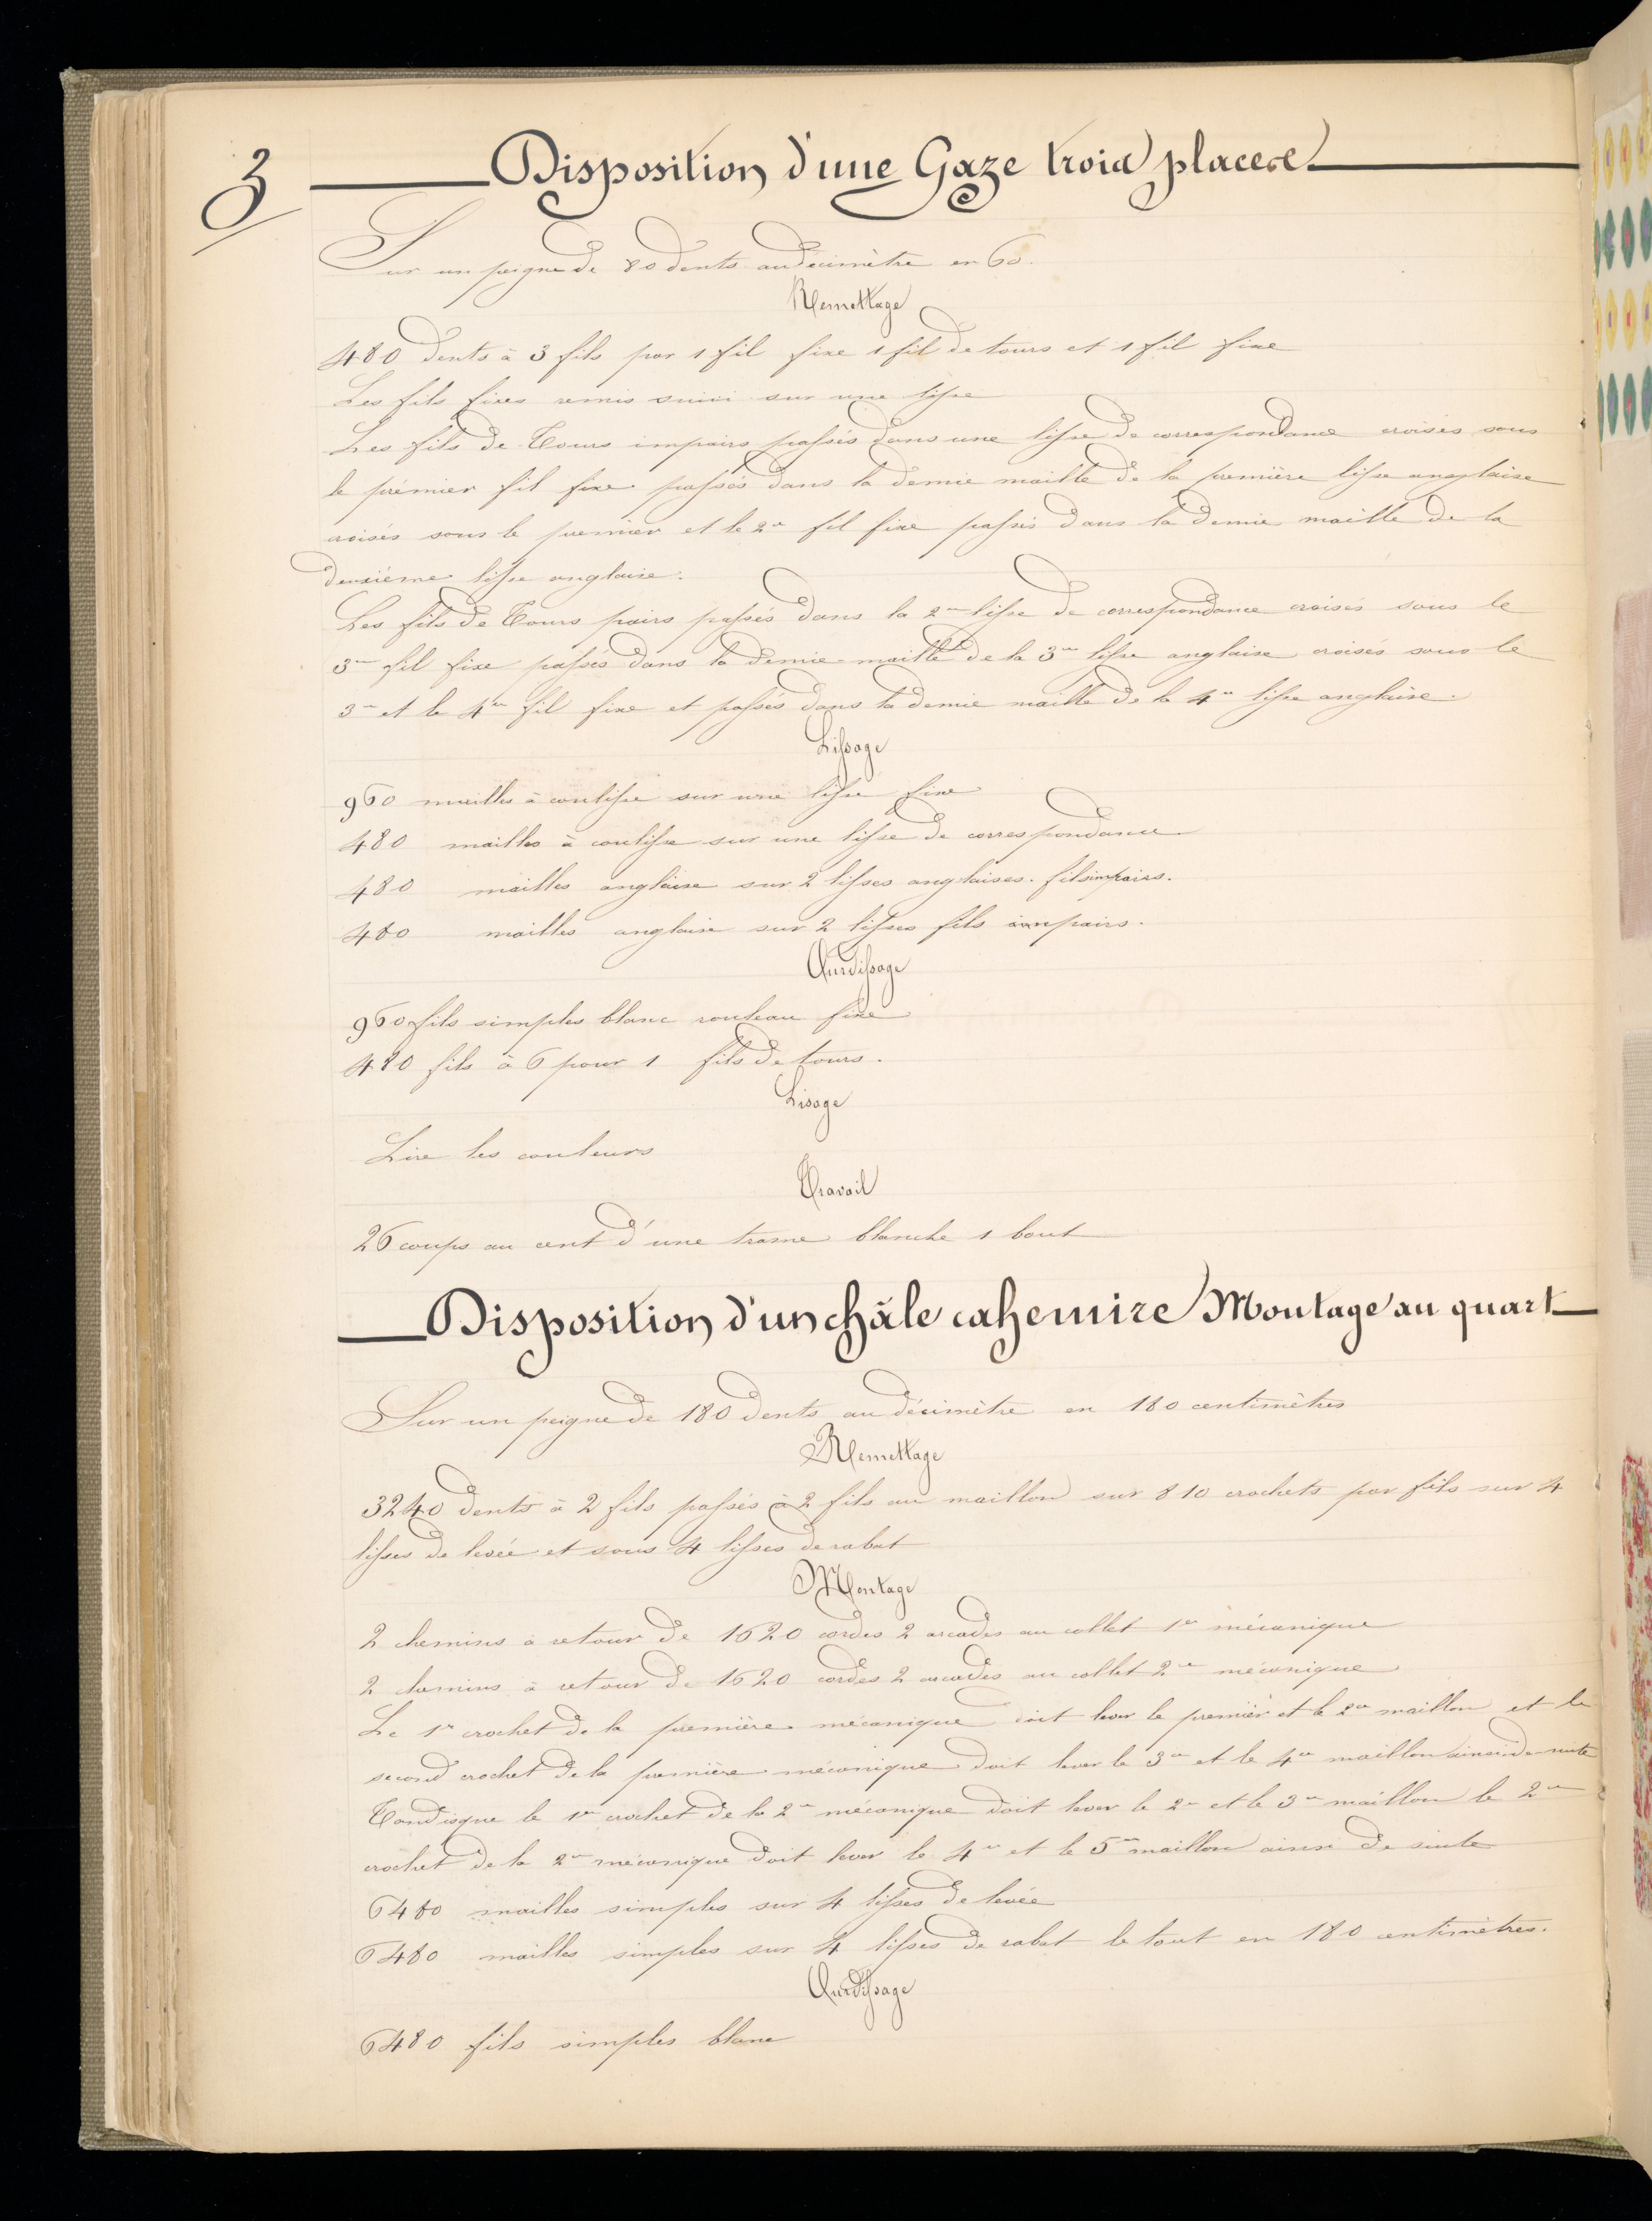 3
Disposition d'une Gaze trois places
Sur un peigne de 80 dents au décimètre en 60.
Remettage
480 dents à 3 fils par 1 fil fixe 1 fil de tours et 1 fil fixe
Les fils fixes remis suivi sur une lisse
Les fils de Tours impairs passés dans une lisse de correspondance croisés sous
le prémier fil fixe passés dans la demie maille de la première lisse anglaise
croisés sous le premier et le 2me fil fixe passés dans la demie maille de la
deuxième lisse anglaise.
Les fils de Tours pairs passés dans la 2me lisse de correspondance croisés sous le
3me fil fixe passés dans la demie maille de la 3me lisse anglaise croisés sous le
3me et le 4me fil fixe et passés dans la demie maille de la 4me lisse anglaise.
Lissage
960 mailles à coulisse sur une lisse fixe
480 mailles à coulisse sur une lisse de correspondance
480 mailles anglaise sur 2 lisses anglaises. fils impairs.
480 mailles anglaise sur 2 lisses fils impairs.
Ourdissage
960 fils simples blanc rouleau fixe
480 fils à 6 pour 1 fils de tours.
Lisage
Lire les couleurs
Travail
26 coups au cent d'une trame blanche 1 bout
Disposition d'un châle cahemire Montage au quart
Sur un peigne de 180 dents au décimètre en 180 centimètres
Remettage
3240 dents à 2 fils passés à 2 fils au maillon sur 810 crochets par fils sur 4
lisses de levée et sous 4 lisses de rabat
Montage
2 chemins à retour de 1620 cordes 2 arcades au collet 1re mécanique
2 chemins à retour de 1620 cordes 2 arcades au collet 2me mécanique
Le 1er crochet de la première mécanique doit lever le premier et le 2me maillon et le
second crochet de la première mécanique doit lever le 3me et le 4me maillon ainsi de suite
Tandisque le 1er crochet de la 2me mécanique doit lever le 2me et le 3me maillon le 2me
crochet de la 2me mécanique doit lever le 4me et le 5me maillon ainsi de suite
6480 mailles simples sur 4 lisses de levée
6480 mailles simples sur 4 lisses de rabat le tout en 180 centimètres.
Ourdissage
6480 fils simples blanc